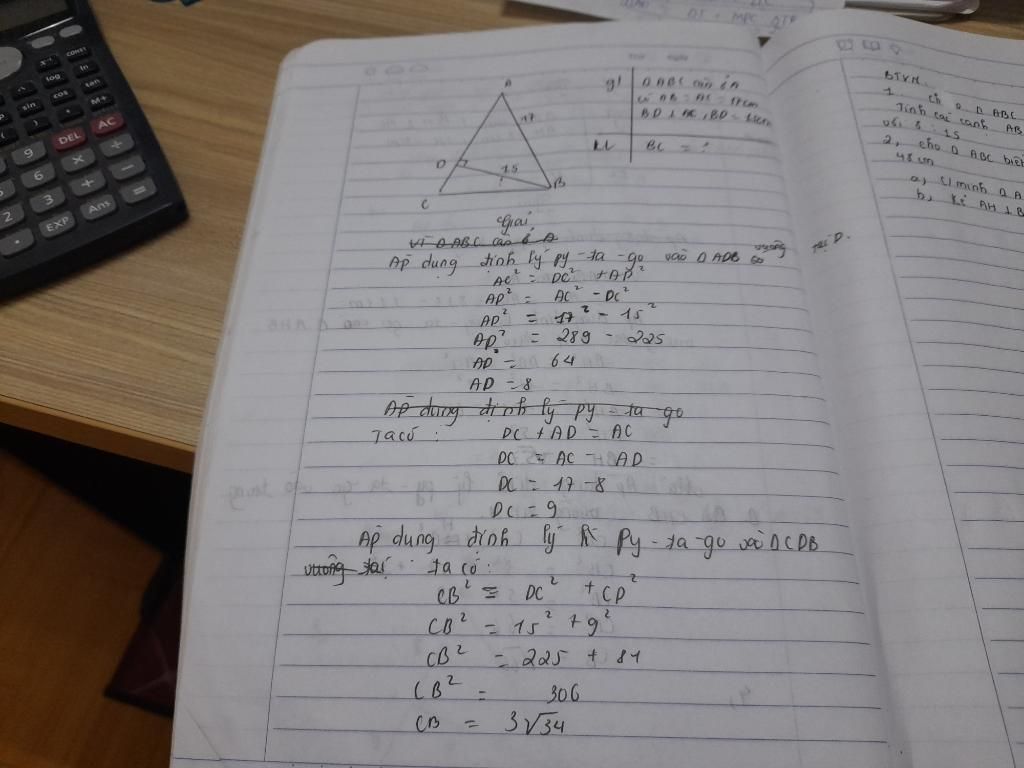 x⁻¹
CONST
log
ln
sin
cos
tan
M+
9
DEL
AC
6
×
÷
2
3
+
−
•
EXP
Ans
A
17
D
15
B
C
gt
Δ ABC cân ở A
có AB = AC = 17cm
BD ⊥ AC, BD = 15cm
KL
BC = ?
Giải
Vì Δ ABC cân ở A
Áp dung định lý py - ta - go vào Δ ADB vuông tại D.
có
AC² = DC² + AD²
AD² = AC² - DC²
AD² = 17² - 15²
AD² = 289 - 225
AD² = 64
AD = 8
Áp dung định lý py - ta - go
Ta có : DC + AD = AC
DC = AC - AD
DC = 17 - 8
DC = 9
Áp dung định lý Py - ta - go vào Δ CDB
vuông tại ta có :
CB² = DC² + CD²
CB² = 15² + 9²
CB² = 225 + 81
CB² = 306
CB = 3√34
BTVN
1, Δ ABC
Tính cạnh AB
với 8 : 15
2, cho Δ ABC biết
48 cm
a, C/minh Δ A
b, Kẻ AH ⊥ B